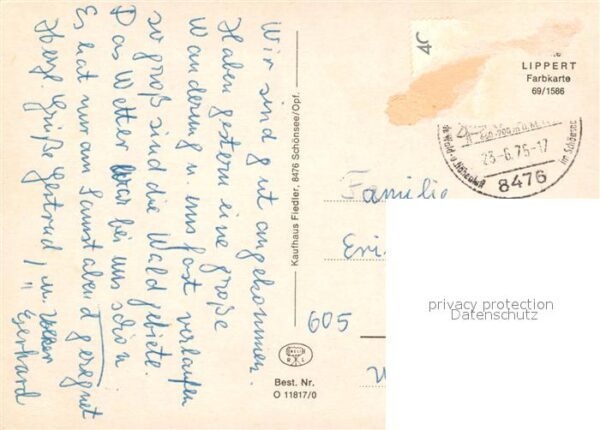 Wir sind gut angekommen.
Haben gestern eine große
Wanderung u. uns fast verlaufen
so groß sind die Waldgebiete.
Das Wetter war bei uns schön
Es hat nur am Samstabend geregnet
Herzl. Grüße Gertrud, u.
" Gerhard
Kaufhaus Fiedler, 8476 Schönsee/Opf.
Best. Nr.
O 11817/0
45
LIPPERT
Farbkarte
69/1586
23.-6.75-17
8476
im Schönseer
Familie
Eri
605
W
privacy protection
Datenschutz